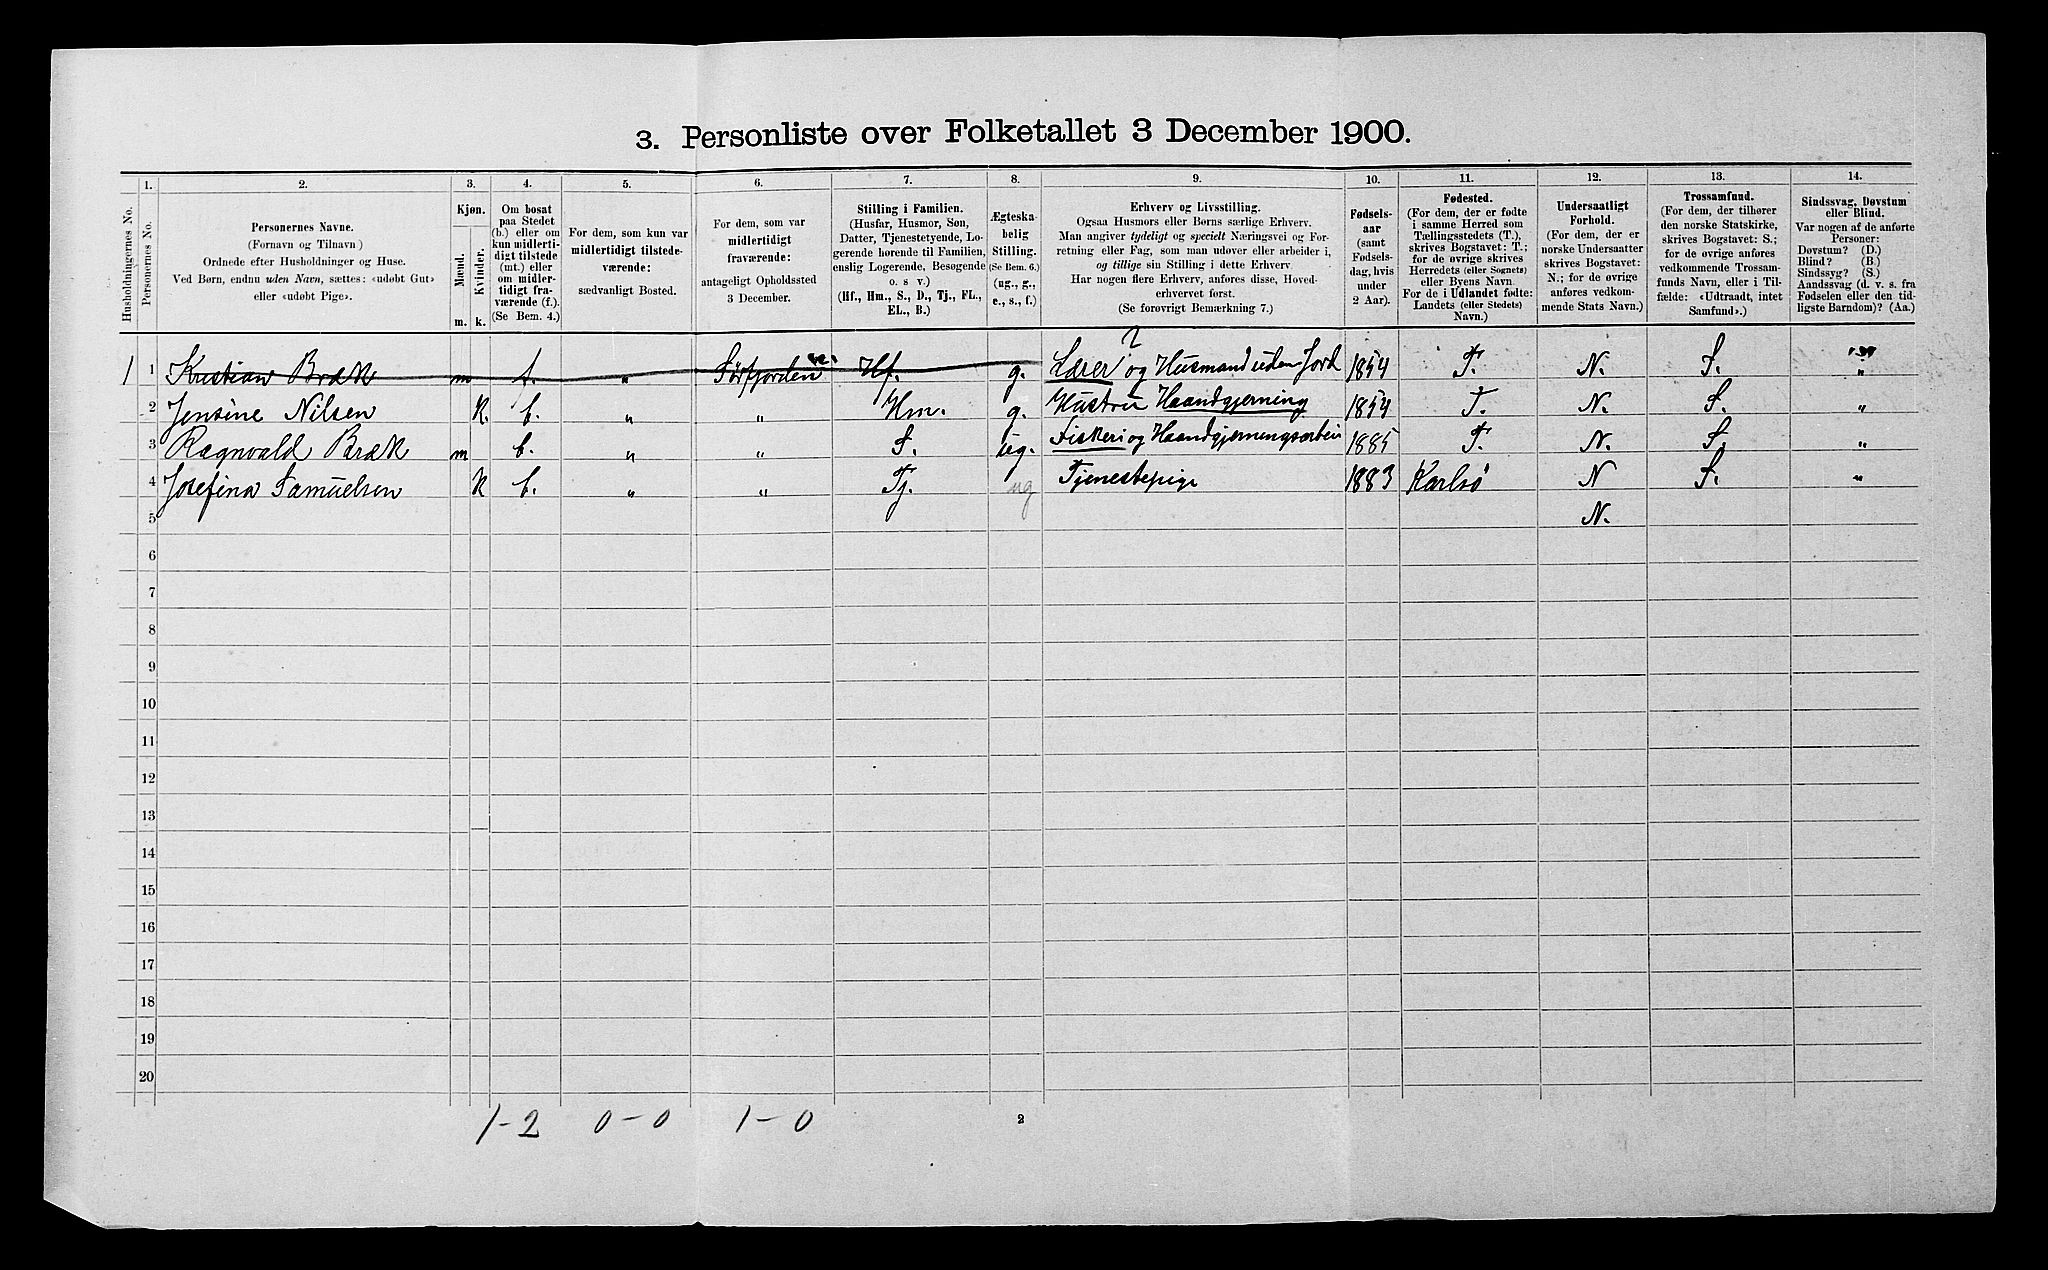 3. Personliste over Folketallet 3 December 1900.
Husholdningernes No.
1.
Personernes No.
2.
Personernes Navne.
(Fornavn og Tilnavn)
Ordnede efter Husholdninger og Huse.
Ved Børn, endnu uden Navn, sættes: «udøbt Gut»
eller «udøbt Pige».
3.
Kjøn.
Mænd.
Kvinder.
m. k.
4.
Om bosat
paa Stedet
(b.) eller om
kun midlerti-
digt tilstede
(mt.) eller
om midler-
tidigt fra-
værende (f.).
(Se Bem. 4.)
5.
For dem, som kun var
midlertidigt tilstede-
værende:
sædvanligt Bosted.
6.
For dem, som var
midlertidigt
fraværende:
antageligt Opholdssted
3 December.
7.
Stilling i Familien.
(Husfar, Husmor, Søn,
Datter, Tjenestetyende, Lo-
gerende hørende til Familien,
enslig Logerende, Besøgende
o. s v.)
(Hf., Hm., S., D., Tj., FL.,
EL., B.)
8.
Ægteska-
belig
Stilling.
(Se Bem. 6.)
(ug., g.,
e., s., f.)
9.
Erhverv og Livsstilling.
Ogsaa Husmors eller Børns særlige Erhverv.
Man angiver tydeligt og specielt Næringsvei og For-
retning eller Fag, som man udøver eller arbeider i,
og tillige sin Stilling i dette Erhverv.
Har nogen flere Erhverv, anføres disse, Hoved-
erhvervet først.
(Se forøvrigt Bemærkning 7.)
10.
Fødsels-
aar
(samt
Fødsels-
dag, hvis
under
2 Aar).
11.
Fødested.
(For dem, der er fødte
i samme Herred som
Tællingsstedets (T.),
skrives Bogstavet: T.;
for de øvrige skrives
Herredets (eller Sognets)
eller Byens Navn.
For de i Udlandet fødte:
Landets (eller Stedets)
Navn.)
12.
Undersaatligt
Forhold.
(For dem, der er
norske Undersaatter
skrives Bogstavet:
N.; for de øvrige
anføres vedkom-
mende Stats Navn.)
13.
Trossamfund.
(For dem, der tilhører
den norske Statskirke,
skrives Bogstavet: S.;
for de øvrige anføres
vedkommende Trossam-
funds Navn, eller i Til-
fælde: «Udtraadt, intet
Samfund».)
14.
Sindssvag, Døvstum
eller Blind.
Var nogen af de anførte
Personer:
Døvstum? (D.)
Blind? (B.)
Sindssyg? (S.)
Aandssvag (d. v. s. fra
Fødselen eller den tid-
ligste Barndom)? (Aa.)
?
1 1 Kristian Bræk m f. „ Sörfjorden Hf. g. Lærer og Husmand uden Jord 1854 T. N. S. „
2 Jensine Nilsen K. b. „ „ Hm. g. Hustru Haandgjerning 1854 T. N. S. „
3 Ragnvald Bræk m b. „ „ S. ug. Fiskeri og Haandgjerningsarbei 1885 T. N. S. „
4 Josefina Samuelsen K b. „ „ Tj. ug Tjenestepige 1883 Karlsö N S. „
5 N.
6
7
8
9
10
11
12
13
14
15
16
17
18
19
20
1-2 0-0 1-0 2